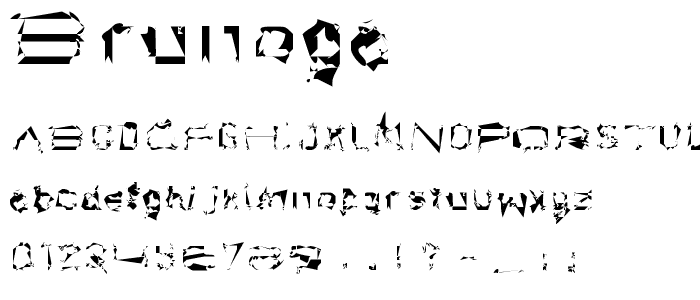 Brunoga
ABCDEFGHIJKLMNOPQRSTUU
abcdefghijklmnopqrstuvwxyz
0123456789 . , ! ? - _ " '